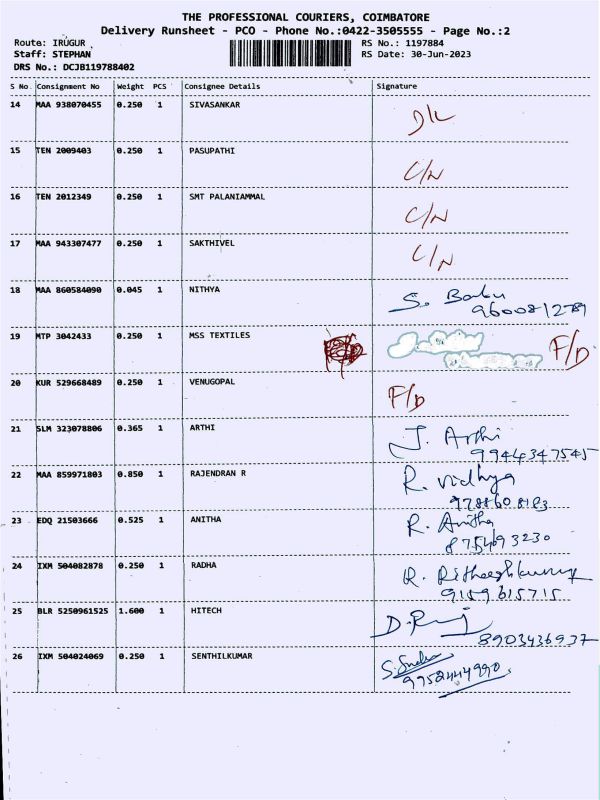 THE PROFESSIONAL COURIERS, COIMBATORE
Delivery Runsheet - PCO - Phone No.:0422-3505555 - Page No.:2
Route: IRUGUR RS No.: 1197884
Staff: STEPHAN RS Date: 30-Jun-2023
DRS No.: DCJB119788402
S No. Consignment No Weight PCS Consignee Details Signature
14 MAA 938070455 0.250 1 SIVASANKAR D/L
15 TEN 2009403 0.250 1 PASUPATHI C/N
16 TEN 2012349 0.250 1 SMT PALANIAMMAL C/N
17 MAA 943307477 0.250 1 SAKTHIVEL C/N
18 MAA 860584090 0.045 1 NITHYA S. Babu
9600812789
19 MTP 3042433 0.250 1 MSS TEXTILES F/D
20 KUR 529668489 0.250 1 VENUGOPAL F/D
21 SLM 323078806 0.365 1 ARTHI J. Arthi
9944347545
22 MAA 859971803 0.850 1 RAJENDRAN R R. Vidhya
23 EDQ 21503666 0.525 1 ANITHA R. Anitha
8754693230
24 IXM 504082878 0.250 1 RADHA R.
9159615715
25 BLR 5250961525 1.600 1 HITECH
8903436937
26 IXM 504024069 0.250 1 SENTHILKUMAR